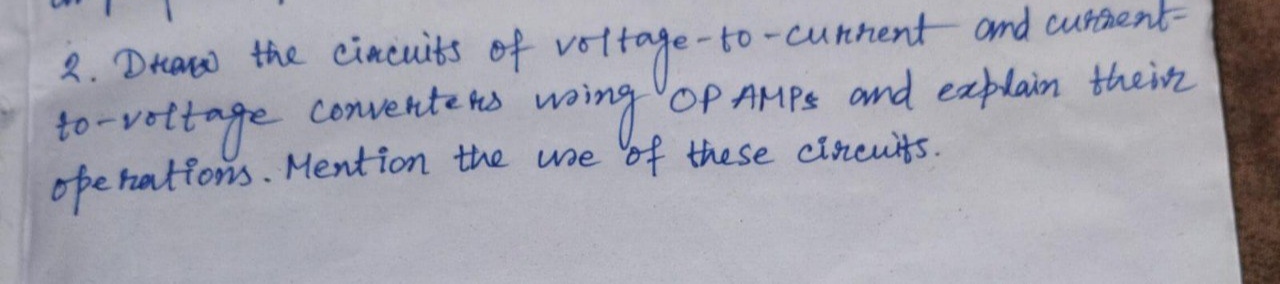 2. Draw the circuits of voltage-to-current and current-
to-voltage converters using OP AMPs and explain their
operations. Mention the use of these circuits.